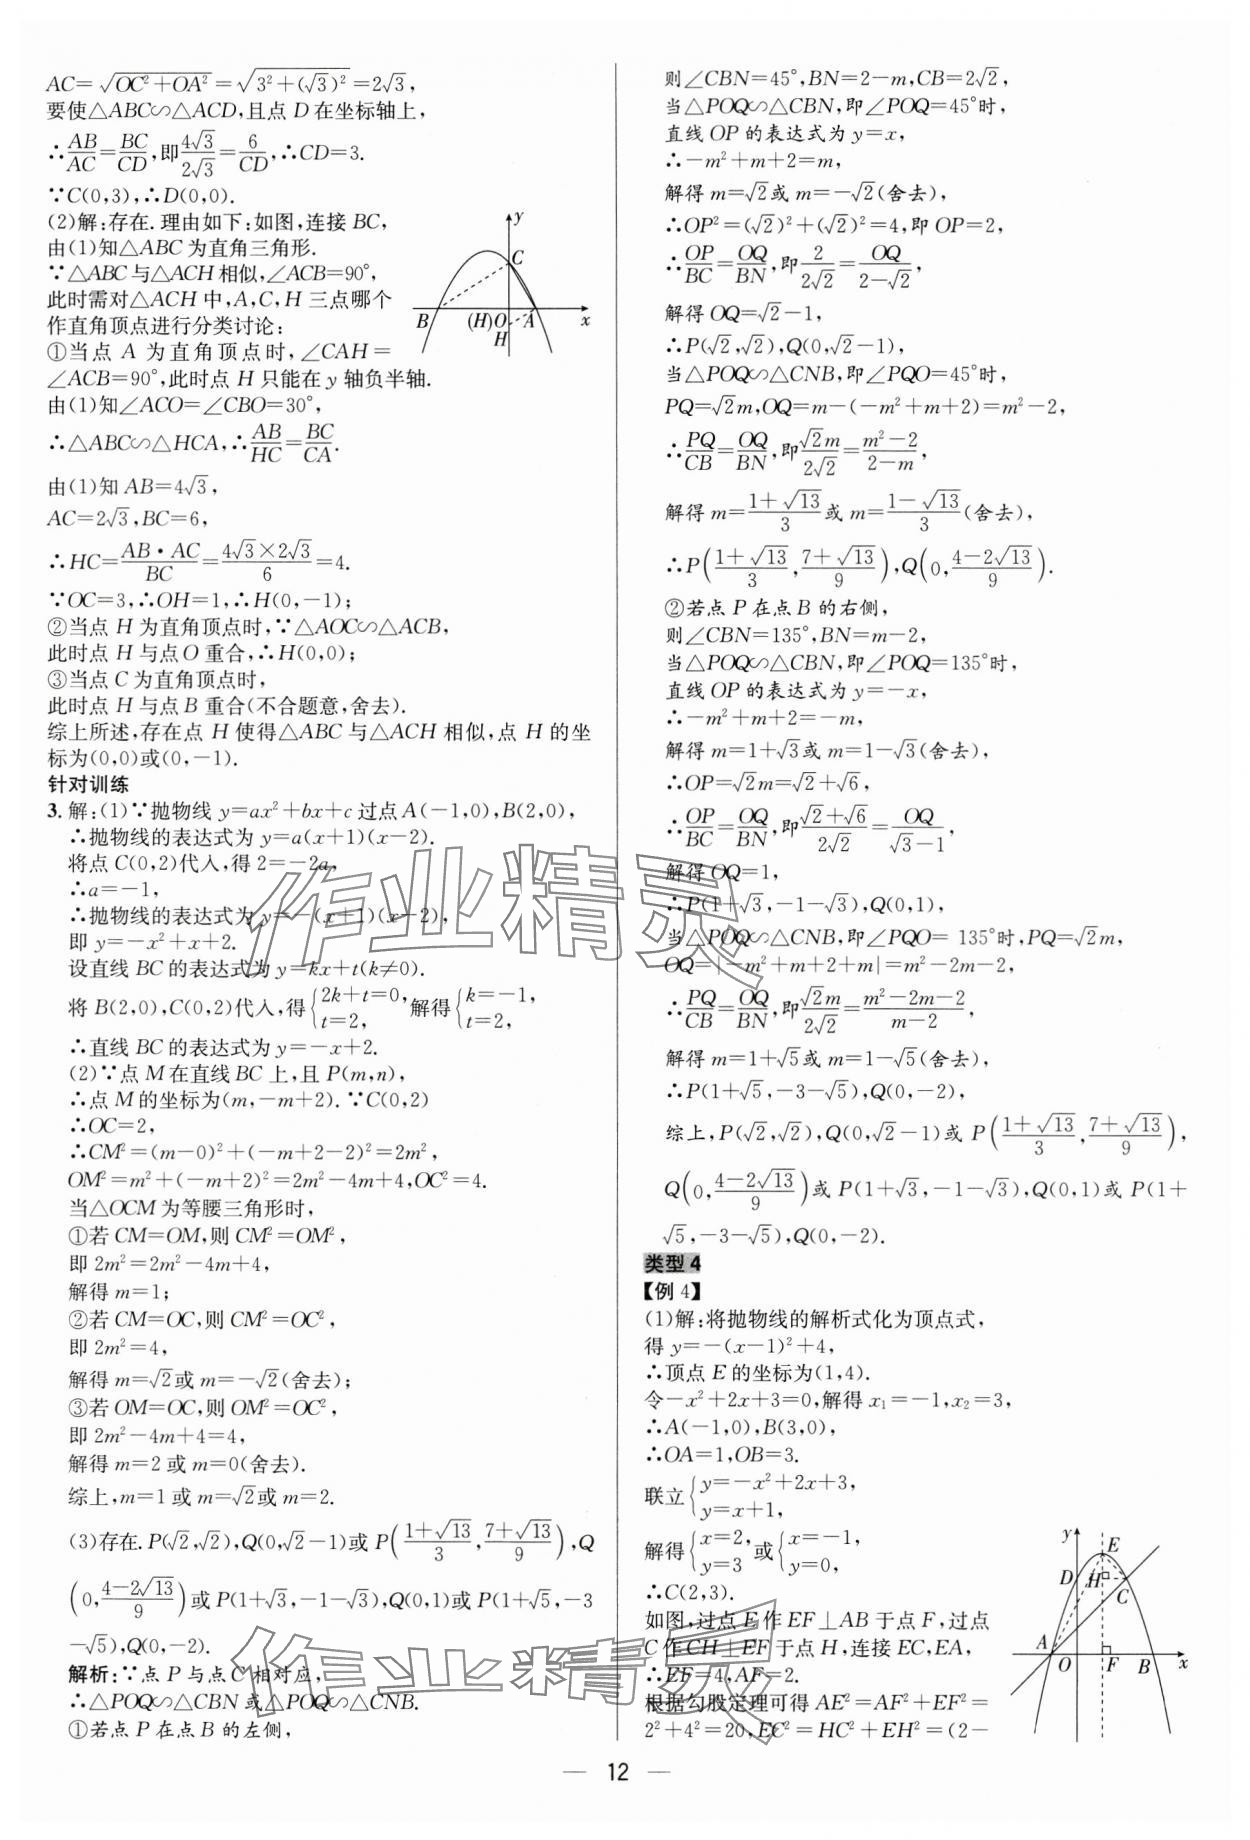 AC=√(OC²+OA²)=√(3²+(√3)²)=2√3,
要使△ABC∽△ACD,且点 D 在坐标轴上,
∴AB/AC=BC/CD,即4√3/2√3=6/CD,∴CD=3.
∵C(0,3),∴D(0,0).
(2)解:存在.理由如下:如图,连接 BC,
由(1)知△ABC 为直角三角形.
∵△ABC 与△ACH 相似,∠ACB=90°,
此时需对△ACH 中,A,C,H 三点哪个
作直角顶点进行分类讨论:
①当点 A 为直角顶点时,∠CAH=
∠ACB=90°,此时点 H 只能在 y 轴负半轴.
由(1)知∠ACO=∠CBO=30°,
∴△ABC∽△HCA,∴AB/HC=BC/CA.
由(1)知 AB=4√3,
AC=2√3,BC=6,
∴HC=AB·AC/BC=4√3×2√3/6=4.
∵OC=3,∴OH=1,∴H(0,-1);
②当点 H 为直角顶点时,∵△AOC∽△ACB,
此时点 H 与点 O 重合,∴H(0,0);
③当点 C 为直角顶点时,
此时点 H 与点 B 重合(不合题意,舍去).
综上所述,存在点 H 使得△ABC 与△ACH 相似,点 H 的坐
标为(0,0)或(0,-1).
y
C
B
(H)O
A
x
H
针对训练
3. 解:(1)∵抛物线 y=ax²+bx+c 过点 A(-1,0),B(2,0),
∴抛物线的表达式为 y=a(x+1)(x-2).
将点 C(0,2)代入,得 2=-2a,
∴a=-1,
∴抛物线的表达式为 y=-(x+1)(x-2),
即 y=-x²+x+2.
设直线 BC 的表达式为 y=kx+t(k≠0).
将 B(2,0),C(0,2)代入,得{2k+t=0, t=2, 解得{k=-1, t=2,
∴直线 BC 的表达式为 y=-x+2.
(2)∵点 M 在直线 BC 上,且 P(m,n),
∴点 M 的坐标为(m,-m+2).∵C(0,2)
∴OC=2,
∴CM²=(m-0)²+(-m+2-2)²=2m²,
OM²=m²+(-m+2)²=2m²-4m+4,OC²=4.
当△OCM 为等腰三角形时,
①若 CM=OM,则 CM²=OM²,
即 2m²=2m²-4m+4,
解得 m=1;
②若 CM=OC,则 CM²=OC²,
即 2m²=4,
解得 m=√2或 m=-√2(舍去);
③若 OM=OC,则 OM²=OC²,
即 2m²-4m+4=4,
解得 m=2 或 m=0(舍去).
综上,m=1 或 m=√2或 m=2.
(3)存在.P(√2,√2),Q(0,√2-1)或 P((1+√13)/3,(7+√13)/9),Q
(0,(4-2√13)/9)或 P(1+√3,-1-√3),Q(0,1)或 P(1+√5,-3
-√5),Q(0,-2).
解析:∵点 P 与点 C 相对应,
∴△POQ∽△CBN 或△POQ∽△CNB.
①若点 P 在点 B 的左侧,
则∠CBN=45°,BN=2-m,CB=2√2,
当△POQ∽△CBN,即∠POQ=45°时,
直线 OP 的表达式为 y=x,
∴-m²+m+2=m,
解得 m=√2或 m=-√2(舍去),
∴OP²=(√2)²+(√2)²=4,即 OP=2,
∴OP/BC=OQ/BN,即2/2√2=OQ/(2-√2),
解得 OQ=√2-1,
∴P(√2,√2),Q(0,√2-1),
当△POQ∽△CNB,即∠PQO=45°时,
PQ=√2m,OQ=m-(-m²+m+2)=m²-2,
∴PQ/CB=OQ/BN,即√2m/2√2=(m²-2)/(2-m),
解得 m=(1+√13)/3或 m=(1-√13)/3(舍去),
∴P((1+√13)/3,(7+√13)/9),Q(0,(4-2√13)/9).
②若点 P 在点 B 的右侧,
则∠CBN=135°,BN=m-2,
当△POQ∽△CBN,即∠POQ=135°时,
直线 OP 的表达式为 y=-x,
∴-m²+m+2=-m,
解得 m=1+√3或 m=1-√3(舍去),
∴OP=√2m=√2+√6,
∴OP/BC=OQ/BN,即(√2+√6)/2√2=OQ/(√3-1),
解得 OQ=1,
∴P(1+√3,-1-√3),Q(0,1),
当△POQ∽△CNB,即∠PQO= 135°时,PQ=√2m,
OQ=|-m²+m+2+m|=m²-2m-2,
∴PQ/CB=OQ/BN,即√2m/2√2=(m²-2m-2)/(m-2),
解得 m=1+√5或 m=1-√5(舍去),
∴P(1+√5,-3-√5),Q(0,-2),
综上,P(√2,√2),Q(0,√2-1)或 P((1+√13)/3,(7+√13)/9),
Q(0,(4-2√13)/9)或 P(1+√3,-1-√3),Q(0,1)或 P(1+
√5,-3-√5),Q(0,-2).
类型 4
【例 4】
(1)解:将抛物线的解析式化为顶点式,
得 y=-(x-1)²+4,
∴顶点 E 的坐标为(1,4).
令-x²+2x+3=0,解得 x₁=-1,x₂=3,
∴A(-1,0),B(3,0),
∴OA=1,OB=3.
联立{y=-x²+2x+3, y=x+1,
解得{x=2, y=3 或{x=-1, y=0,
∴C(2,3).
如图,过点 E 作 EF⊥AB 于点 F,过点
C 作 CH⊥EF 于点 H,连接 EC,EA,
∴EF=4,AF=2.
根据勾股定理可得 AE²=AF²+EF²=
2²+4²=20,EC²=HC²+EH²=(2-
y
E
D
H
C
A
O
F
B
x
作业精灵
作业精灵
12